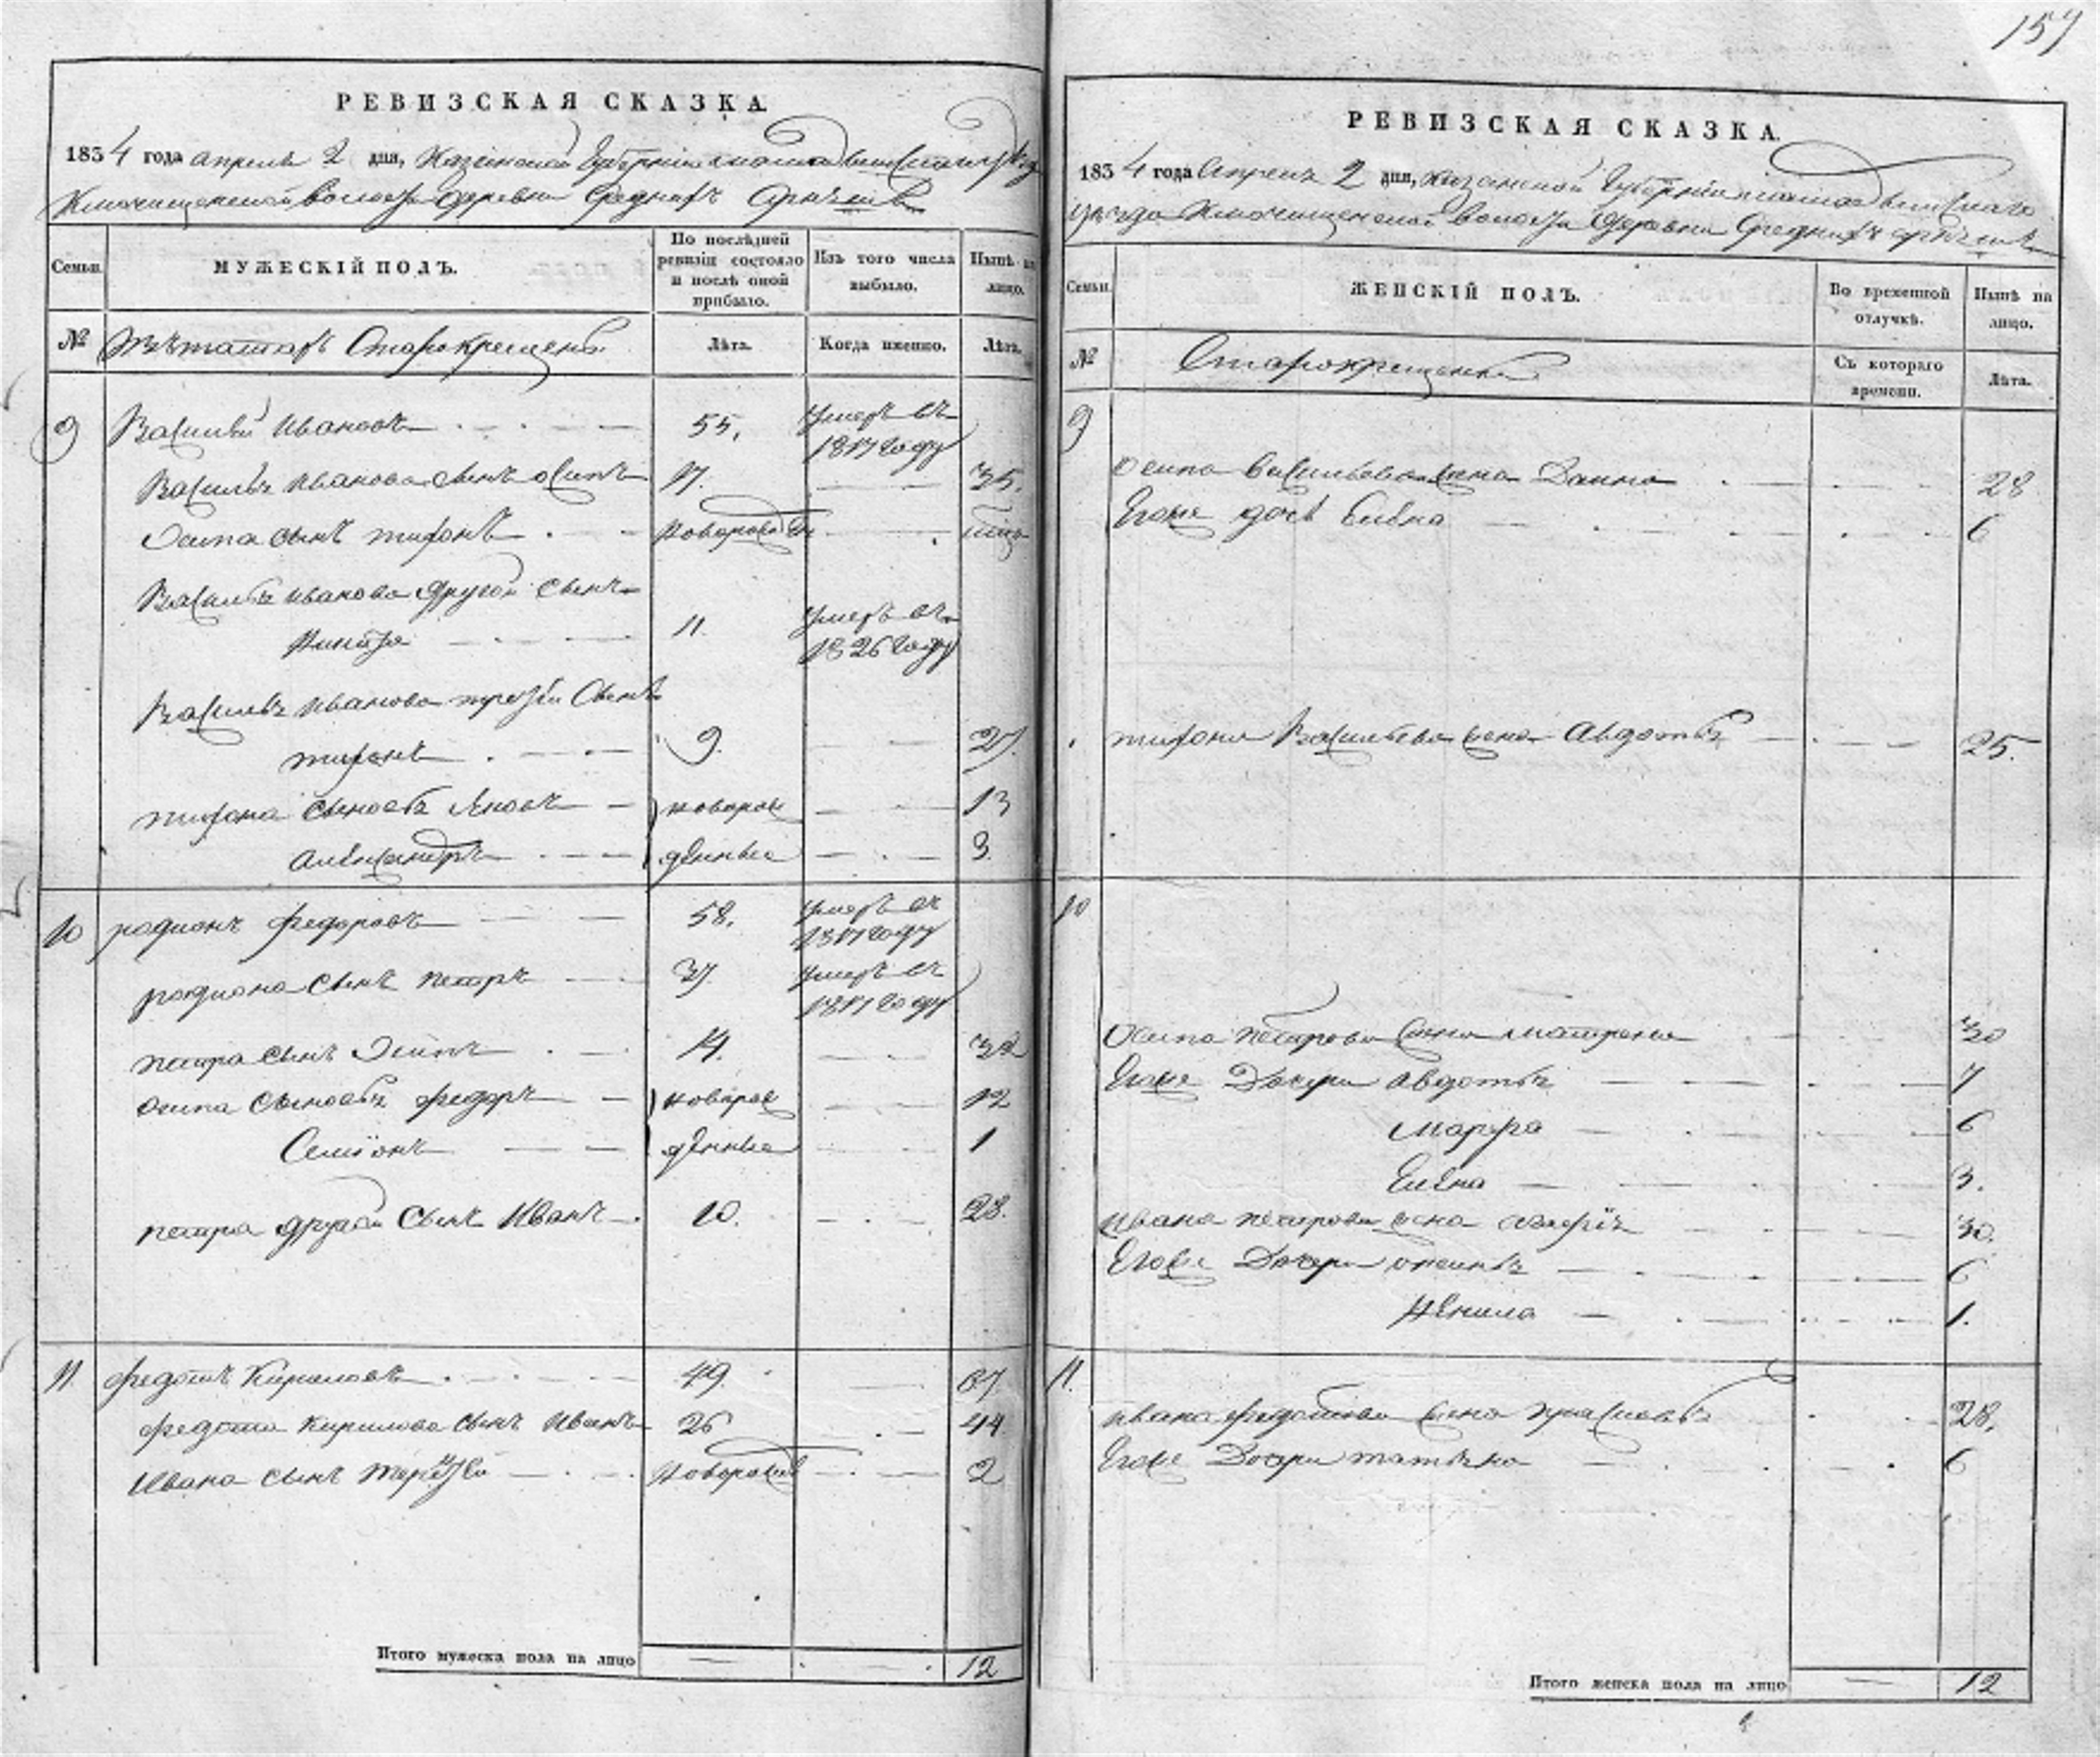 157
РЕВИЗСКАЯ СКАЗКА
1834 года апреля 2 дня, Казанской Губернии
волости деревни Среднихъ
Семьи.
МУЖЕСКІЙ ПОЛЪ.
По послѣдней ревизіи состояло и послѣ оной прибыло.
Изъ того числа выбыло.
Нынѣ на лицо.
№ Изъ татаръ Старокрещены
Лѣта.
Когда именно.
Лѣта.
9 Василей Ивановъ 55. умеръ въ 1817 году
Василья Иванова сынъ Осипъ 17. 35.
Осипа сынъ Тихонъ новорожден
Василья Иванова другой сынъ
Никита 11. умеръ въ 1826 году
Василья Иванова третей сынъ
Тихонъ 9. 27.
Тихона сыновья Яковъ новорож 13
Александръ денныя 3.
10 Родионъ Федоровъ 58. умеръ въ 1817 году
Родиона сынъ Петръ 37. умеръ въ 1817 году
Петра сынъ Осипъ 14. 32
Осипа сыновья Федоръ новорож 12
Семіонъ денныя 1
Петра другой сынъ Иванъ 10. 28.
11. Федотъ Кириловъ 49. 67
Федота Кирилова сынъ Иванъ 26 44
Ивана сынъ новорожд 2
Итого мужеска пола на лицо 12
РЕВИЗСКАЯ СКАЗКА.
1834 года Апреля 2 дня, Казанской Губернии
уезда волости деревни Среднихъ
Семьи.
ЖЕНСКІЙ ПОЛЪ.
Во временной отлучкѣ.
Нынѣ на лицо.
№ Старокрещены
Съ котораго времени.
Лѣта.
9
Осипа Васильева жена Данна 28
Егоже дочь Елена 6
Тихона Васильева жена Авдотья 25.
10
Осипа Петрова жена Матрена 30
Егоже дочери Авдотья 7
Марфа 6
Елена 3.
Ивана Петрова жена 30.
Егоже дочери Аксинья 6
Ненила 1.
11.
Ивана Федотова жена 28.
Егоже дочери Татьяна 6
Итого женска пола на лицо 12